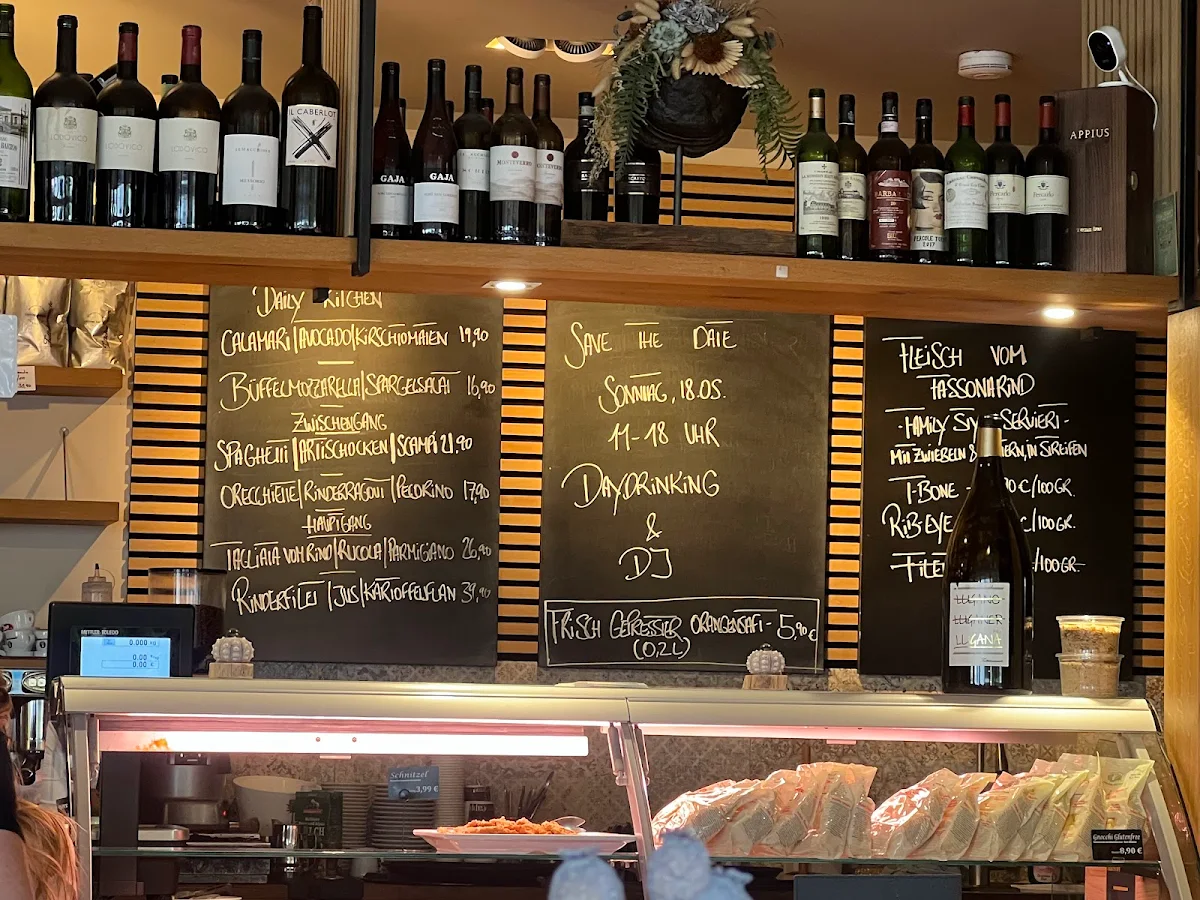 LODOVICO
LODOVICO
LODOVICO
IL CABERLOT
GAJA
GAJA
MONTEVERRO
APPIUS
DAILY KITCHEN
CALAMARI|AVOCADO|KIRSCHTOMATEN 19,90
BÜFFELMOZZARELLA|SPARGELSALAT 16,90
ZWISCHENGANG
SPAGHETTI|ARTISCHOCKEN|SCAMPI 21,90
ORECCHIETTE|RINDERRAGOUT|PECORINO 17,90
HAUPTGANG
TAGLIATA VOM RIND|RUCOLA|PARMIGIANO 26,90
RINDERFILET|JUS|KARTOFFELFLAN 39,90
SAVE THE DATE
SONNTAG, 18.05.
11-18 UHR
DAYDRINKING
&
DJ
FRISCH GEPRESSTER ORANGENSAFT - 5,90€
(0,2L)
FLEISCH VOM
FASSONARIND
-FAMILY SERVIERT-
MIT ZWIEBELN & IN STREIFEN
T-BONE €/100GR.
RIB-EYE €/100GR.
FILET /100GR.
LUGANO
LUGANER
LUGANA
METTLER TOLEDO
0.000 kg
0.00 €
0.00 €
Schnitzel
3,99 €
Gnocchi Glutenfree
8,90 €